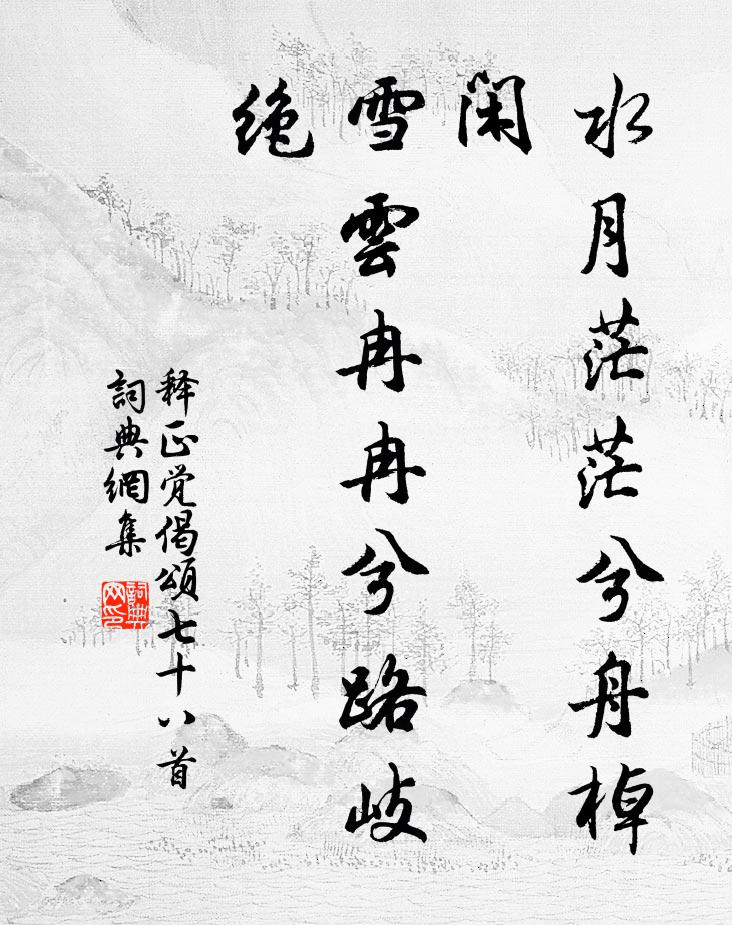 水月茫茫兮舟棹
闲
雪雲冉冉兮路岐
绝
释正觉偈頌七十八首
詞典網集
詞典
网印